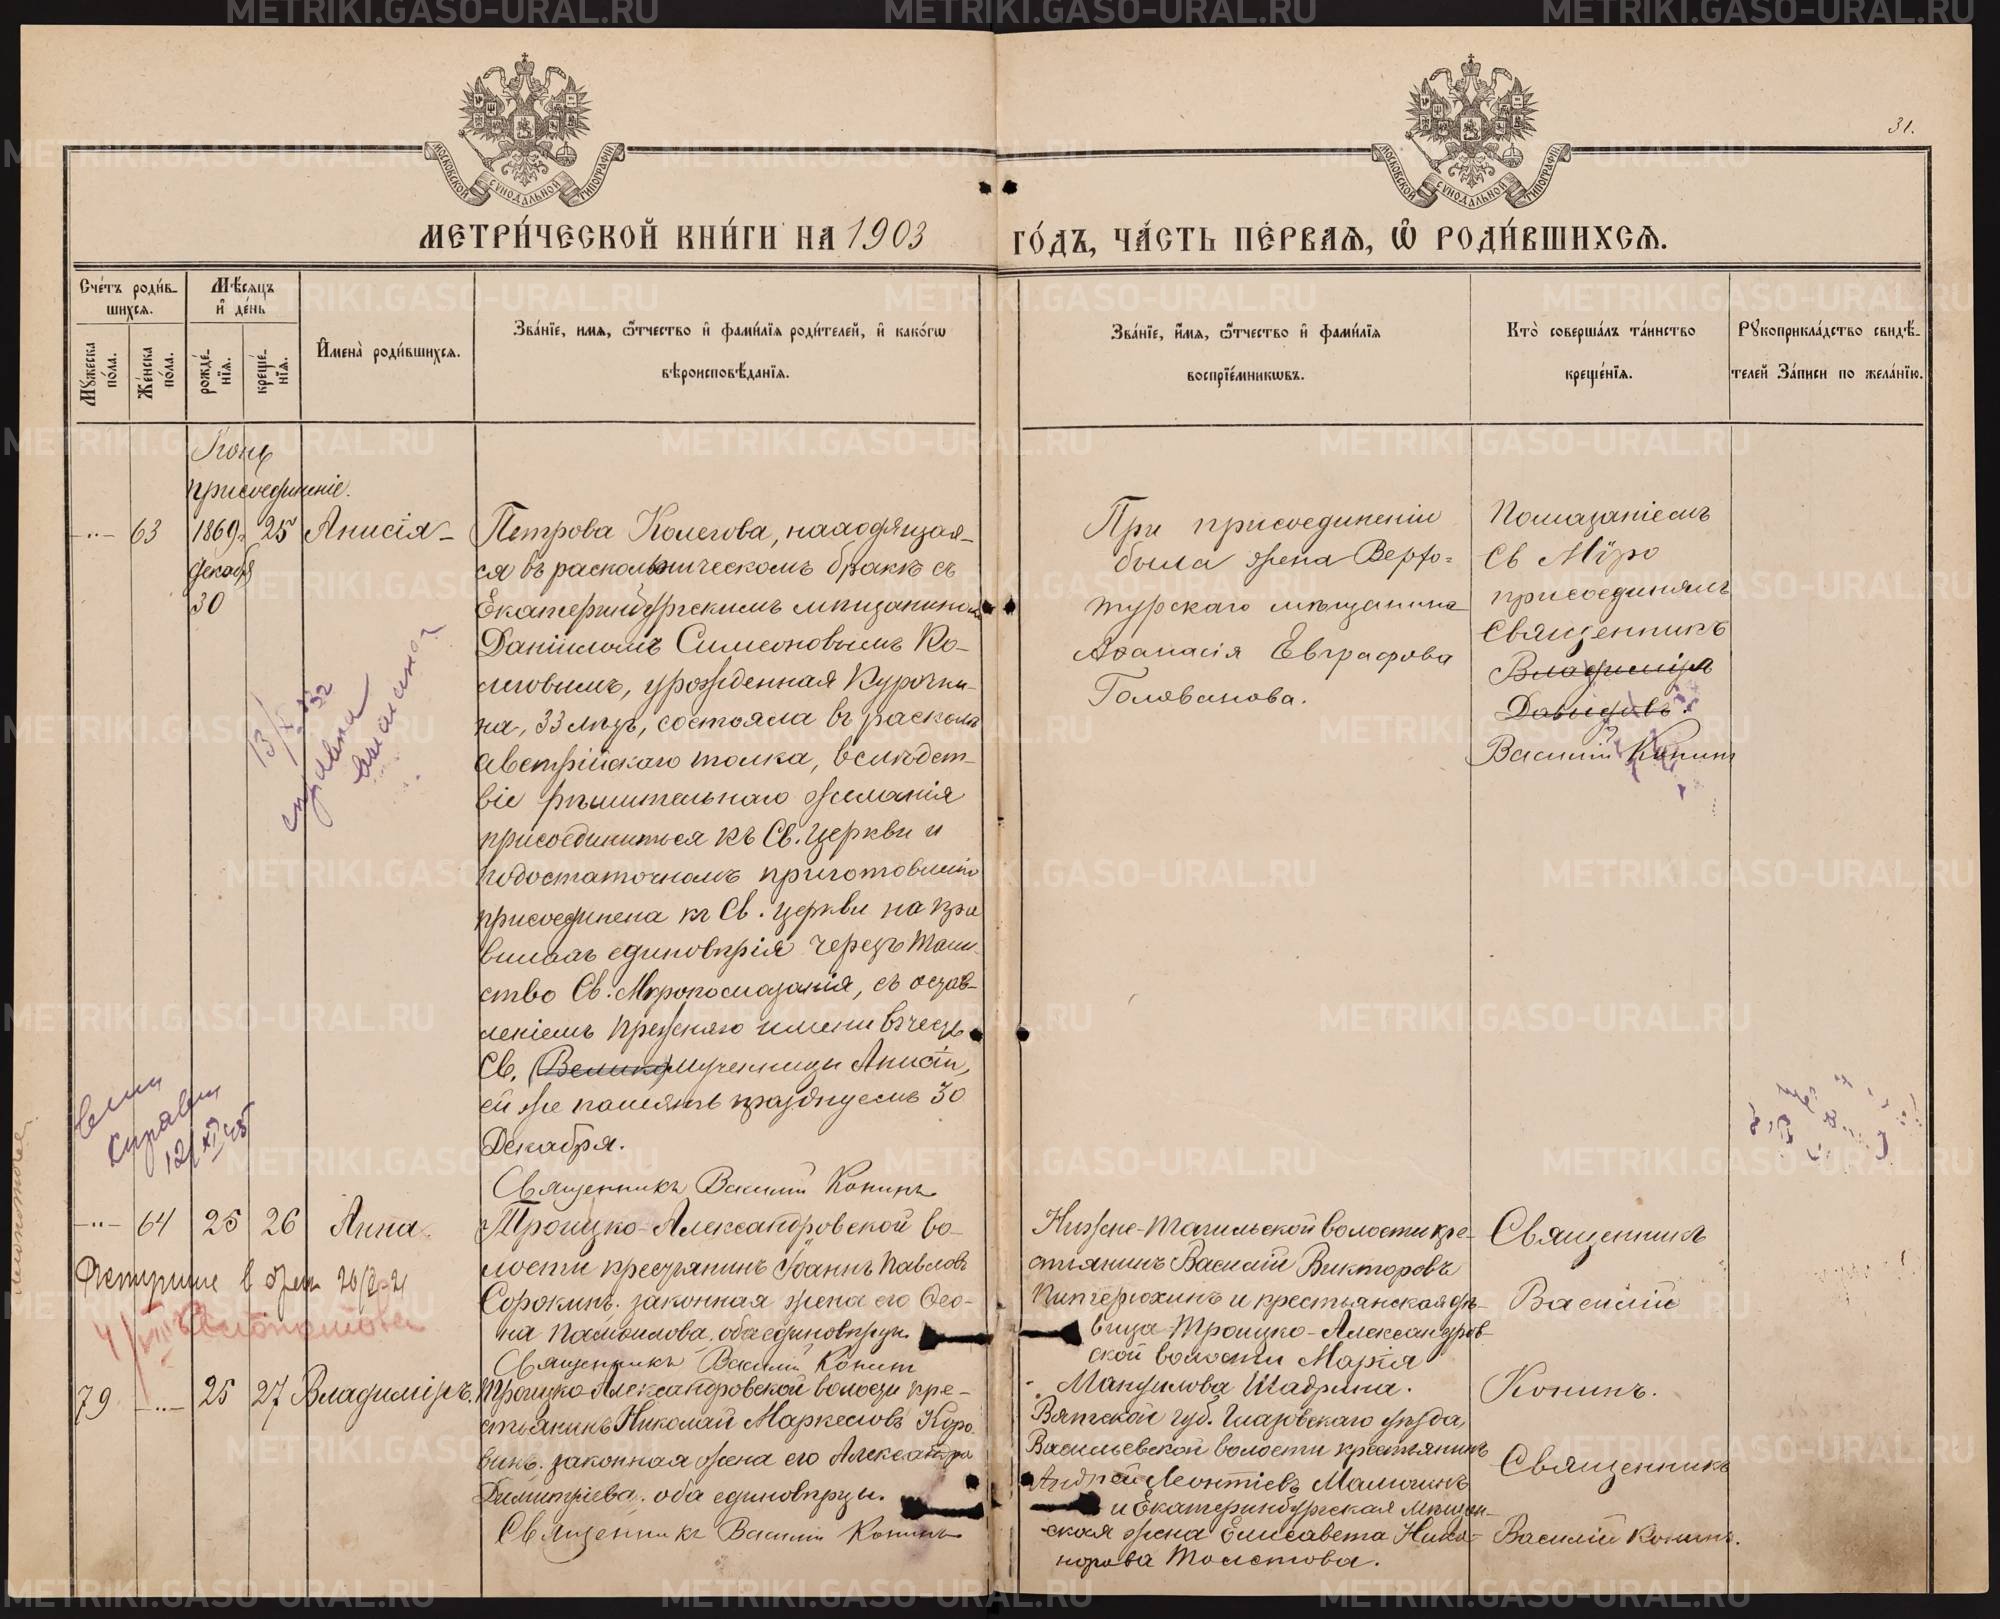 31.
МОСКОВСКОЙ СУНОДАЛЬНОЙ ТИПОГРАФІИ
МОСКОВСКОЙ СУНОДАЛЬНОЙ ТИПОГРАФІИ
МЕТРИ́ЧЕСКОЙ КНИ́ГИ НА 1903 ГО́ДЪ, ЧА́СТЬ ПЕ́РВАЯ, Ѡ РОДИ́ВШИХСЯ.
Сче́тъ роди́в-
шихся.
Мѣ́сяцъ
и҆ де́нь
Мꙋ́жеска по́ла.
Же́нска по́ла.
рожде́-
нїя.
креще́-
нїя.
И҆мена̀ роди́вшихся.
Зва́нїе, и҆мя, ѻ҆́тчество и҆ фами́лїя роди́телей, и҆ како́гѡ
вѣроисповѣ́данїя.
Зва́нїе, и҆́мя, ѻ҆́тчество и҆ фами́лїя
воспрїе́мникѡвъ.
Кто̀ соверша́лъ та́инство
креще́нїя.
Рꙋкоприкла́дство свидѣ́-
телей За́писи по жела́нїю.
присоединеніе.
-"- 63 1869 г. 25 Анисія
декабр
30
Петрова Колегова, находящая-
ся въ раскольническомъ бракѣ съ
Екатеринбургскимъ мѣщаниномъ
Даніиломъ Симеоновымъ Ко-
леговымъ, урожденная Курочки-
на, 33 лѣтъ, состояла въ расколѣ
австрійскаго толка, вслѣдст-
віе рѣшительнаго желанія
присоединиться къ Св. Церкви и
подостаточномъ приготовленіи
присоединена къ Св. Церкви на пра
вилахъ единовѣрія чрезъ таин
ство Св. Мѵропомазанія, съ остав-
леніемъ прежняго имени въ честь
Св. Великомученицы Анисіи,
ей же память празднуемъ 30
Декабря.
Священникъ Василій Конинъ
При присоединеніи
была жена Верхо-
турскаго мѣщанина
Аѳанасія Евграфова
Голованова.
Помазаніемъ
Св Мѵро
присоединялъ
Священникъ
Владиміръ
Давидовъ
Василій Конин
13/X 32
справка
12/XI 45
-"- 64 25 26 Анна.
Троицко-Александровской во-
лости крестьянинъ Іоаннъ Павловъ
Сорокинъ. законная жена его Ѳео-
на Памфилова. оба единовѣрцы.
Священникъ Василій Конин
Нижне-Тагильской волости кре-
стьянинъ Василій Викторовъ
и крестьянская дѣ-
вица Троицко-Александров-
ской волости Марія
Мануилова Шадрина.
Священникъ
Василій
Конинъ.
79 -"- 25 27 Владиміръ.
Троицко-Александровской волости кре-
стьянинъ Николай Маркеловъ Коро
винъ. законная жена его Александра
Димитріева. оба единовѣрцы.
Священникъ Василій Конинъ
Вятской губ. Глазовскаго уѣзда,
Васильевской волости крестьянинъ
Андрей Леонтіевъ
и Екатеринбургская мѣщан-
ская жена Елисавета Ника-
норова Толстова.
Священникъ
Василій Конинъ.